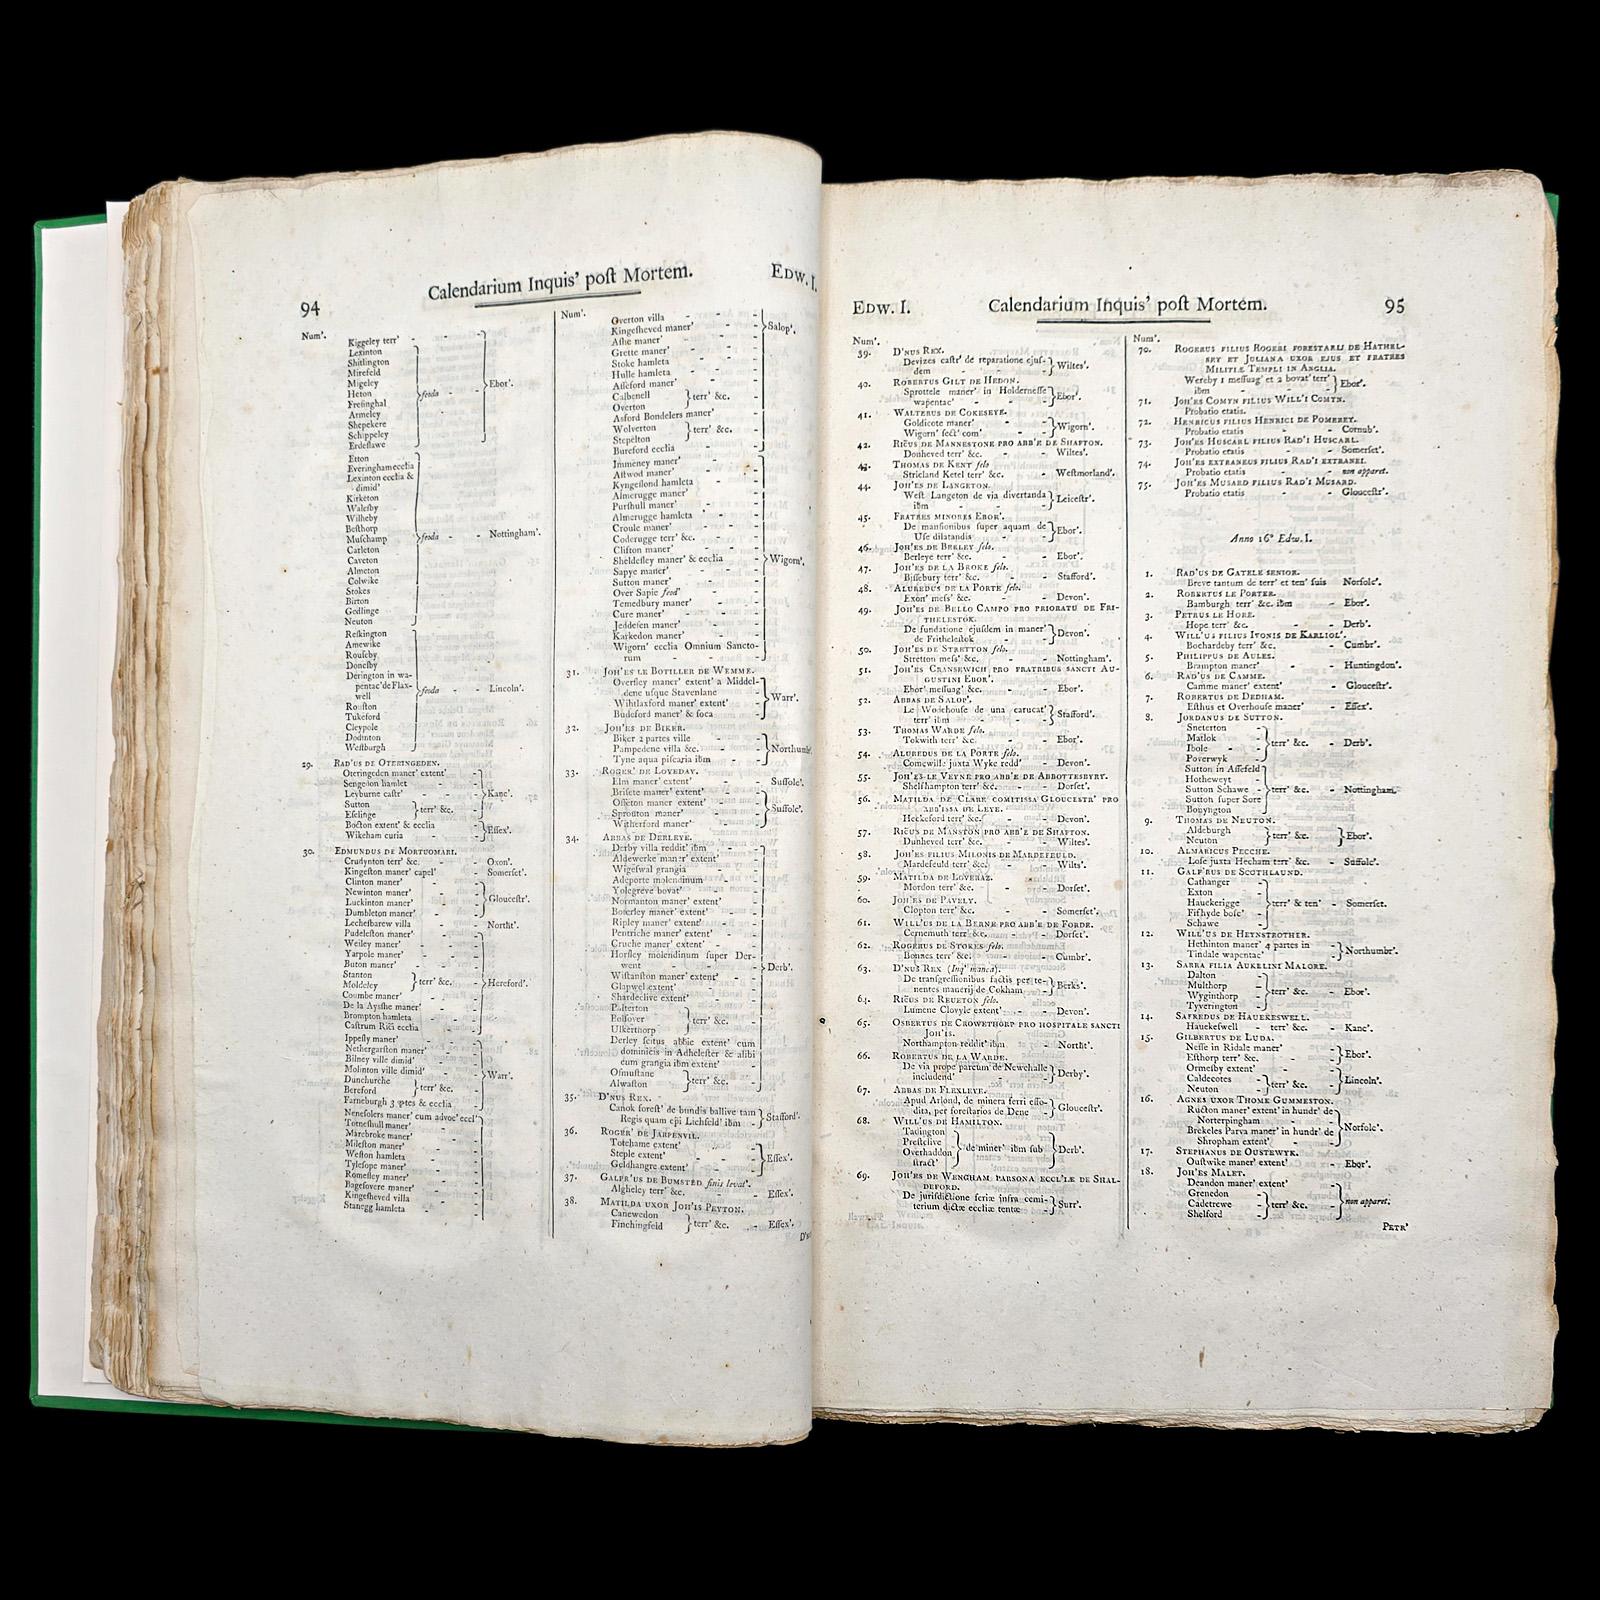 94
Calendarium Inquis' poſt Mortem.
EDW. I.
Num'.
Kiggeley terr'
Lexinton
Shitlington
Mirefeld
Migeley
Heton
Freſinghal
Armeley
Shepekere
Schippeley
Erdeſlawe
feoda
Ebor'.
Etton
Everingham ecclia
Lexinton ecclia &
dimid'
Kirketon
Waleſby
Wilheby
Beſthorp
Muſchamp
Carleton
Caveton
Almeton
Colwike
Stokes
Birton
Gedlinge
Neuton
feoda
Nottingham'.
Reſkington
Amewike
Rouſeby
Doneſby
Derington in wa-
pentac' de Flax-
well
Rouſton
Tukeford
Cleypole
Dodinton
Weſtburgh
feoda
Lincoln'.
29. RAD'US DE OTERINGEDEN.
Oteringeden maner' extent'
Sengedon hamlet
Leyburne caſtr'
Sutton
Eſelinge
terr' &c.
Kanc'.
Bocton extent' & ecclia
Wikeham curia
Eſſex'.
30. EDMUNDUS DE MORTUOMARI.
Crudynton terr' &c. - Oxon'.
Kingeſton maner' capel' - Somerſet'.
Clinton maner'
Newinton maner'
Luckinton maner'
Dumbleton maner'
Glouceſtr'.
Lecheſbarew villa - Northt'.
Pudeleſton maner'
Weiley maner'
Yarpole maner'
Buton maner'
Stanton
Moldeley
terr' &c.
Coumbe maner'
De la Ayſhe maner'
Brompton hamleta
Caſtrum Ric̃i ecclia
Hereford'.
Ippeſly maner'
Nethergarſton maner'
Bilney ville dimid'
Molinton ville dimid'
Dunchurche
Bereford
terr' &c.
Farneburgh 3 ptes & ecclia
Warr'.
Neneſolers maner' cum advoc' eccl'
Totneſhull maner'
Marebroke maner'
Mileſton maner'
Weſton hamleta
Tyleſope maner'
Romeſley maner'
Bageſovere maner'
Kingeſheved villa
Stanegg hamleta
Num'.
Overton villa
Kingeſheved maner'
Aſhe maner'
Grette maner'
Stoke hamleta
Hulle hamleta
Aſſeford maner'
Calbenell
Overton
terr' &c.
Asford Bondelers maner'
Wolverton
Stepelton
terr' &c.
Bureford ecclia
Salop'.
Immeney maner'
Aſtwod maner'
Kyngeſlond hamleta
Almerugge maner'
Purſhull maner'
Almerugge hamleta
Croule maner'
Coderugge terr' &c.
Clifton maner'
Sheldeſley maner' & ecclia
Sapye maner'
Sutton maner'
Over Sapie feod'
Temedbury maner'
Cure maner'
Jeddefen maner'
Karkedon maner'
Wigorn' ecclia Omnium Sancto-
rum
Wigorn'.
31. JOH'ES LE BOTILLER DE WEMME.
Overſley maner' extent' a Middel-
dene uſque Stavenlane
Wihtlaxford maner' extent'
Budeford maner' & ſoca
Warr'.
32. JOH'ES DE BIKER.
Biker 2 partes ville
Pampedene villa &c.
Tyne aqua piſcaria ibm
Northumbr'
33. ROGER' DE LOVEDAY.
Elm maner' extent' - Suffolc'.
Briſete maner' extent'
Offeton maner' extent'
Sprouton maner'
Witherford maner'
Suffolc'.
34. ABBAS DE DERLEYE.
Derby villa reddit' ibm
Aldewerke maner' extent'
Wigefwal grangia
Adeporte molendinum
Yolegreve bovat'
Normanton maner' extent'
Boterley maner' extent'
Ripley maner' extent'
Pentriche maner' extent'
Cruche maner' extent'
Horſley molendinum ſuper Der-
went
Wiſtanton maner' extent'
Glapwel extent'
Shardeclive extent'
Paſterton
Bolſover
Ulkerthorp
terr' &c.
Derley ſcitus abbie extent' cum
dominicis in Adheleſter & alibi
cum grangia ibm extent'
Oſmuſtane
Alwaſton
terr' &c.
Derb'.
35. D'NUS REX.
Canok foreſt' de bundis ballive tam
Regis quam epi Lichfeld' ibm
Stafford'.
36. ROGER' DE JARPENVIL.
Totehame extent'
Steple extent'
Geldhangre extent'
Eſſex'.
37. GALFR'US DE BUMSTED finis levat'.
Algheley terr' &c. - Eſſex'.
38. MATILDA UXOR JOH'IS PEYTON.
Canewedon
Finchingfeld
terr' &c. - Eſſex'.
EDW. I.
Calendarium Inquis' poſt Mortem.
95
Num'.
39. D'NUS REX.
Devizes caſtr' de reparatione ejuſ-
dem
Wiltes'.
40. ROBERTUS GILT DE HEDON.
Sprottele maner' in Holderneſſe
wapentac'
Ebor'.
41. WALTERUS DE COKESEYE.
Goldicote maner'
Wigorn' ſect' com'
Wigorn'.
42. RIC̃US DE MANNESTONE PRO ABB'E DE SHAFTON.
Donheved terr' &c. - Wiltes'.
43. THOMAS DE KENT felo
Stricland Ketel terr' &c. - Weſtmorland'.
44. JOH'ES DE LANGETON.
Weſt Langeton de via divertanda
ibm
Leiceſtr'.
45. FRATRES MINORES EBOR'.
De manſionibus ſuper aquam de
Uſe dilatandis
Ebor'.
46. JOH'ES DE BERLEY felo.
Berleye terr' &c. - Ebor'.
47. JOH'ES DE LA BROKE felo.
Biſſebury terr' &c. - Stafford'.
48. ALUREDUS DE LA PORTE felo.
Exon' meſs' &c. - Devon'.
49. JOH'ES DE BELLO CAMPO PRO PRIORATU DE FRI-
THELESTOK.
De fundatione ejuſdem in maner'
de Frithelſtok
Devon'.
50. JOH'ES DE STRETTON felo.
Stretton meſs' &c. - Nottingham'.
51. JOH'ES CRANSEWICH PRO FRATRIBUS SANCTI AU-
GUSTINI EBOR'.
Ebor' meſſuag' &c. - Ebor'.
52. ABBAS DE SALOP'.
Le Wodehouſe de una carucat'
terr' ibm
Stafford'.
53. THOMAS WARDE felo.
Tokwith terr' &c. - Ebor'.
54. ALUREDUS DE LA PORTE felo.
Comewille juxta Wyke redd' - Devon'.
55. JOH'ES LE VEYNE PRO ABB'E DE ABBOTTESBYRY.
Shelſhampton terr' &c. - Dorſet'.
56. MATILDA DE CLARE COMITISSA GLOUCESTR' PRO
ABB'ISSA DE LEYE.
Heckeford terr' &c. - Devon'.
57. RIC̃US DE MANSTON PRO ABB'E DE SHAFTON.
Dunheved terr' &c. - Wiltes'.
58. JOH'ES FILIUS MILONIS DE MARDEFEULD.
Mardefeuld terr' &c. - Wilts'.
59. MATILDA DE LOVERAZ.
Mordon terr' &c. - Dorſet'.
60. JOH'ES DE PAVELY.
Clopton terr' &c. - Somerſet'.
61. WILL'US DE LA BERNE PRO ABB'E DE FORDE.
Cernemuth terr' &c. - Dorſet'.
62. ROGERUS DE STOKES felo.
Bonnes terr' &c. - Cumbr'.
63. D'NUS REX (Inq' manca).
De tranſgreſſionibus factis per te-
nentes manerij de Cokham
Berks'.
64. RIC̃US DE REUETON felo.
Lumene Clovyle extent' - Devon'.
65. OSBERTUS DE CROWETHORP PRO HOSPITALE SANCTI
JOH'IS.
Northampton reddit' ibm - Northt'.
66. ROBERTUS DE LA WARDE.
De via prope parcum de Newehalle
includend'
Derby'.
67. ABBAS DE FLEXLEYE.
Apud Arlond, de minera ferri effo-
dita, per foreſtarios de Dene
Glouceſtr'.
68. WILL'US DE HAMILTON.
Tadington
Preſtclive
Overhaddon
ſtract'
de miner' ibm ſub
Derb'.
69. JOH'ES DE WENGHAM PARSONA ECCL'IÆ DE SHAL-
DEFORD.
De juriſdictione feriæ infra cemi-
terium dictæ eccliæ tentæ
Surr'.
Num'.
70. ROGERUS FILIUS ROGERI FORESTARIJ DE HATHEL-
SEY ET JULIANA UXOR EJUS ET FRATRES
MILITIÆ TEMPLI IN ANGLIA.
Wereby 1 meſſuag' et 2 bovat' terr'
ibm
Ebor'.
71. JOH'ES COMYN FILIUS WILL'I COMYN.
Probatio etatis.
72. HENRICUS FILIUS HENRICI DE POMEREY.
Probatio etatis - Cornub'.
73. JOH'ES HUSCARL FILIUS RAD'I HUSCARL.
Probatio etatis - Somerſet'.
74. JOH'ES EXTRANEUS FILIUS RAD'I EXTRANEI.
Probatio etatis - non apparet.
75. JOH'ES MUSARD FILIUS RAD'I MUSARD.
Probatio etatis - Glouceſtr'.
Anno 16º Edw. I.
1. RAD'US DE GATELE SENIOR.
Breve tantum de terr' et ten' ſuis Norfolc'.
2. ROBERTUS LE PORTER.
Bamburgh terr' &c. ibm - Ebor'.
3. PETRUS LE HORE.
Hope terr' &c. - Derb'.
4. WILL'US FILIUS IVONIS DE KARLIOL'.
Bochardeby terr' &c. - Cumbr'.
5. PHILIPPUS DE AULES.
Brampton maner' - Huntingdon'.
6. RAD'US DE CAMME.
Camme maner' extent' - Glouceſtr'.
7. ROBERTUS DE DEDHAM.
Eſthus et Overhouſe maner' - Eſſex'.
8. JORDANUS DE SUTTON.
Sneterton
Matlok
Ibole
Poverwyk
terr' &c. - Derb'.
Sutton in Aſſefeld
Hotheweyt
Sutton Schawe
Sutton ſuper Sore
Bonyngton
terr' &c. - Nottingham'.
9. THOMAS DE NEUTON.
Aldeburgh
Neuton
terr' &c.
Ebor'.
10. ALMARICUS PECCHE.
Loſe juxta Hecham terr' &c. - Suffolc'.
11. GALF'RUS DE SCOTHLAUND.
Cathanger
Exton
Hauckerigge
Fifhyde boſc'
Schawe
terr' & ten' - Somerſet.
12. WILL'US DE HEYNSTROTHER.
Hethinton maner' 4 partes in
Tindale wapentac'
Northumbr'.
13. SARRA FILIA AUKELINI MALORE.
Dalton
Multhorp
Wyginthorp
Tyverington
terr' &c. - Ebor'.
14. SAFREDUS DE HAUEKESWELL.
Hauekeſwell - terr' &c. - Kanc'.
15. GILBERTUS DE LUDA.
Neſſe in Ridale maner'
Eſthorp terr' &c.
Ebor'.
Ormeſby extent'
Caldecotes
Neuton
terr' &c.
Lincoln'.
16. AGNES UXOR THOME GUMMESTON.
Ruſton maner' extent' in hundr' de
Norterpingham
Brekeles Parva maner' in hundr' de
Shropham extent'
Norfolc'.
17. STEPHANUS DE OUSTEWYK.
Ouſtwike maner' extent' - Ebor'.
18. JOH'ES MALET.
Deandon maner' extent'
Grenedon
Cadetrewe
Shelford
terr' &c.
non apparet.
PETR'